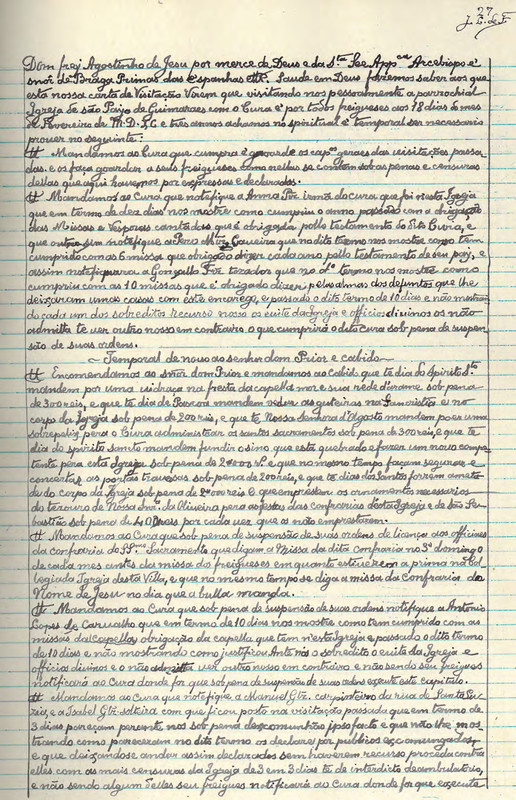 27
J. L. de F.
Dom frej Agostinho de Jesu por merce de Deus e da Sta See Appca Arcebispo e
snor de Braga Primas das espanhas etc. Saude em Deus fazemos saber aos que
esta nossa carta de Visitação virem que visitando nos pessoalmente a parrochial
Igreja de são Paijo de Guimarães com o Cura e por todos freigueses aos 18 dias do mes
de Fevereiro de M.D.LC e tres annos achamos no spiritual e temporal ser necessario
prover no seguinte:
# Mandamos ao Cura que cumpra e goarde os capos geraes das visitações passa-
das. e os faça goardar a seus freigueses como nellas se contem sob as penas e censuras
dellas que aqui havemos por expressas e declaradas.
# Mandamos ao Cura que notefique a Anna Frz irmã do cura que foi nesta Igreja
que em termo de dez dias nos mostre como cumprio o anno passado com a obrigação
das Missas e Vesporas cantadas que é obrigada pollo testamento do dito Cura, e
que outro sim notefique a Pero Alvrz que no dito termo nos mostre como tem
cumprido com as 6 missas que é obrigado dizer cada anno pello testamento de seu pay, e
assim notefiquara a Gonzallo Frz tozador que no do termo nos mostre como
cumpriu com as 10 missas que é obrigado dizer pelas almas dos defuntos que lhe
deixaram umas casas com este encarrego, e passado o dito termo de 10 dias e não mostran-
do cada um dos sobreditos recurso nosso os evite da Igreja e officios divinos os não
admitta te ver outro nosso em contrairo, o que cumprirá o dito Cura sob pena de suspen-
são de suas ordens.
~ Temporal de novo ao senhor dom Prior e cabido ~
# Encomendamos ao sñor dom Prior e mandamos ao Cabido que te dia do Spirito Sto
mandem por uma vidraça na fresta da capella mor e sua rêde d'arame sob pena
de 300 reis, e que te dia de Pascoa mandem vedar as guteiras na Sancristia e no
corpo da Igreja sob pena de 200 reis, e que te Nossa Senhora d'Agosto mandem poer uma
sobrepeliz pera o Cura administrar os santos sacramentos sob pena de 300 reis, e que te
dia de spirito santo mandem fundir o sino que está quebrado e fazer um novo compe-
tente pera esta Igreja sob pena de 2000 rs. e que no mesmo tempo façam segurar e
concertar as portas travessas sob pena de 200 reis, e que te dia dos Santos forrem ameta-
de do corpo da Igreja sob pena de 2000 reis E que emprestem os ornamentos necessarios
do tezouro de Nossa Snra da Oliveira pera as festas das confrarias desta Igreja e de São Se-
bastião sob pena de 400 reis por cada vez que os não emprestarem.
# Mandamos ao Cura que sob pena de suspensão de suas ordens de licença aos officiaes
da confraria do SSmo Sacramento que digam a Missa da dita Confraria no 3º domingo
de cada mes antes da missa dos freigueses em quanto estiverem a prima na Col-
legiada Igreja desta Villa, e que no mesmo tempo se diga a missa da Confraria do
Nome de Jesu no dia que a bulla manda.
# Mandamos ao Cura que sob pena de suspensão de suas ordens notifique a Antonio
Lopes de Carvalho que em termo de 10 dias nos mostre como tem cumprido com as
missas da Capella e obrigação da capella que tem n'esta Igreja e passado o dito termo
de 10 dias e não mostrando como justifficou Ante nós o sobredito o evite da Igreja e
officios divinos e o não admitta ver outro nosso em contrairo e não sendo seu freigues
notificará ao Cura donde for que sob pena de suspensão de suas ordens exsecute este capitolo.
# Mandamos ao Cura que notefique, a Manuel Glz. carpinteiro da rua de Santa Lu-
zia, e a Isabel Glz solteira com que ficou posto na visitação passada que em termo de
3 dias pareçam perante nós sob pena de excomunhão ipso facto e que não lhe mos-
trando como pareceram no dito termo os declare por publicos excomungados,
e que deixandose andar assim declarados sem haverem recurso proceda contra
elles com as mais censuras da Igreja de 3 em 3 dias té de interdicto deambulatorio,
e não sendo algum delles seu freigues notificará ao Cura donde for que exsecute